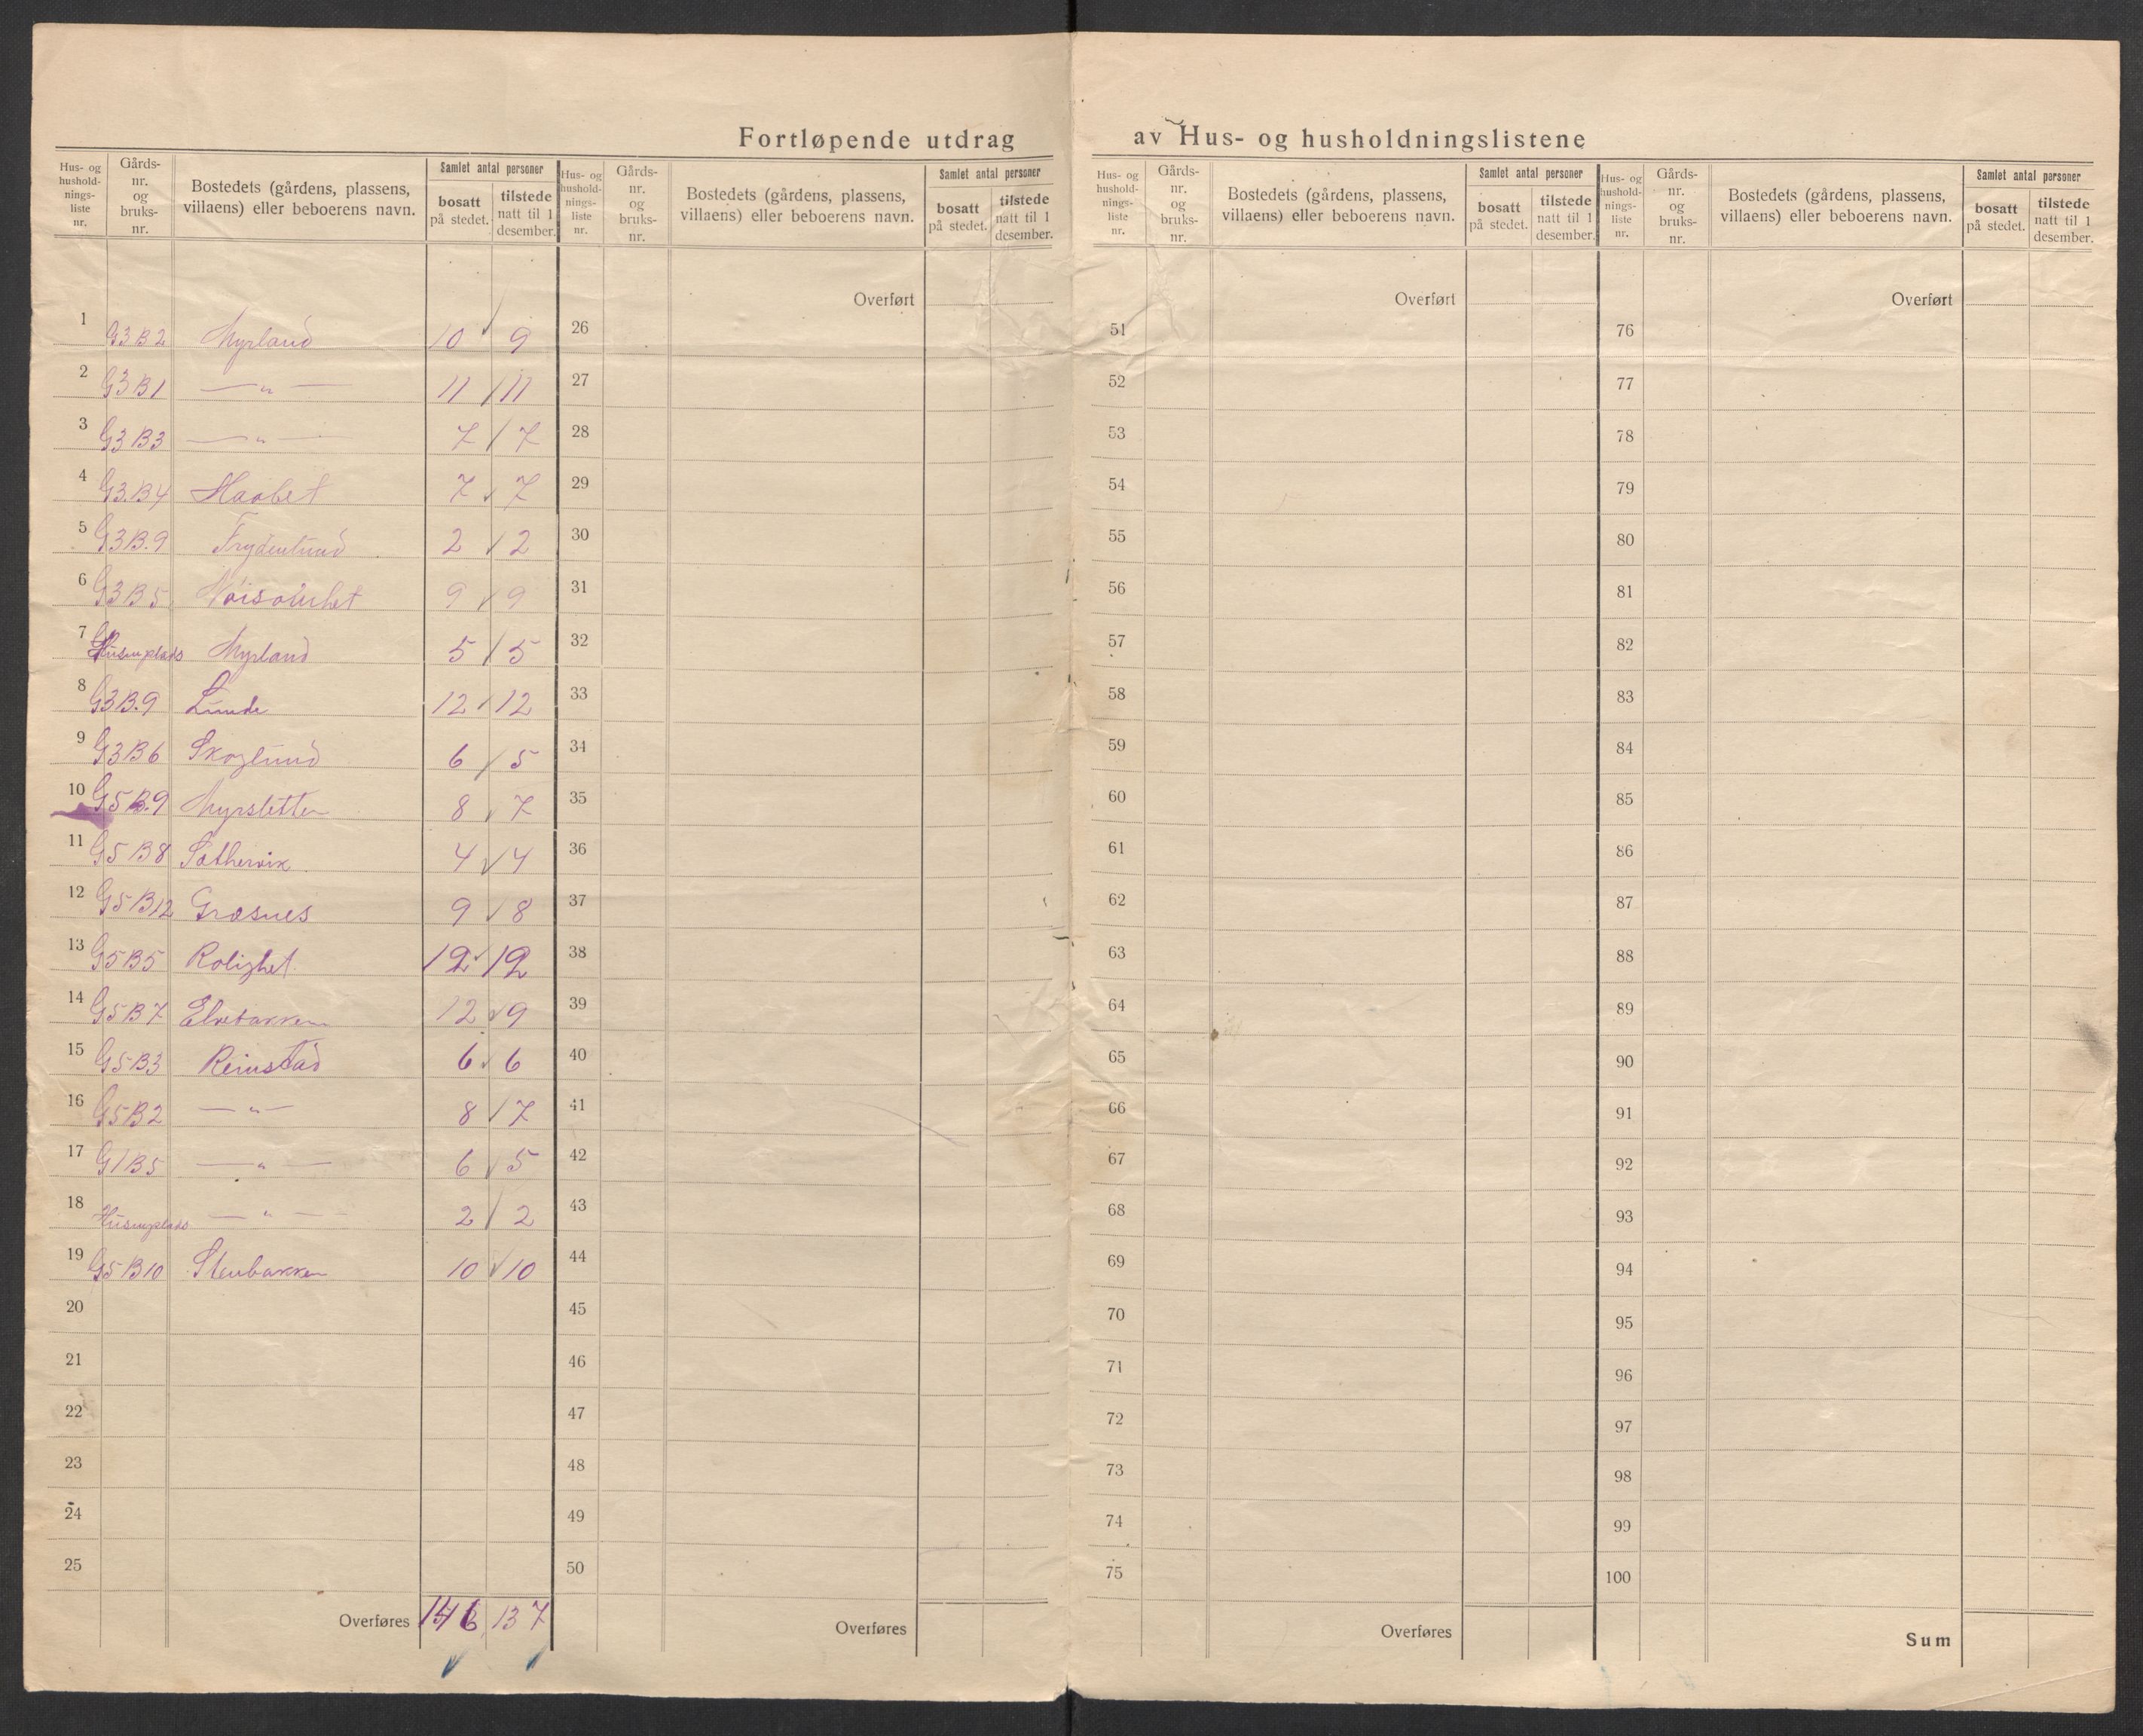 Fortløpende utdrag av Hus- og husholdningslistene
Hus- og hushold- nings- liste nr. | Gårds- nr. og bruks- nr. | Bostedets (gårdens, plassens, villaens) eller beboerens navn. | Samlet antal personer | bosatt på stedet. | tilstede natt til 1 desember.
1 G3B2 Myrland 10 9
2 G3B1 — „ — 11 11
3 G3B3 — „ — 7 7
4 G3.B4 Haabet 7 7
5 G3B.9 Frydenlund 2 2
6 G3B5 9 9
7 Husmplads Myrland 5 5
8 G3B.9 Lunde 12 12
9 G3B6 Skoglund 6 5
10 G5B.9 Myrsletten 8 7
11 G5B8 4 4
12 G5B12 Græsnes 9 8
13 G5B5 Rolighet 12 12
14 G5B7 Elvebakken 12 9
15 G5B3 Reinstad 6 6
16 G5B2 — „ — 8 7
17 G1B5 — „ — 6 5
18 Husmplads — „ — 2 2
19 G5B10 Stenbakken 10 10
20
21
22
23
24
25
Overføres 146 137
Hus- og hushold- nings- liste nr. | Gårds- nr. og bruks- nr. | Bostedets (gårdens, plassens, villaens) eller beboerens navn. | Samlet antal personer | bosatt på stedet. | tilstede natt til 1 desember.
Overført
26
27
28
29
30
31
32
33
34
35
36
37
38
39
40
41
42
43
44
45
46
47
48
49
50
Overføres
Hus- og hushold- nings- liste nr. | Gårds- nr. og bruks- nr. | Bostedets (gårdens, plassens, villaens) eller beboerens navn. | Samlet antal personer | bosatt på stedet. | tilstede natt til 1 desember.
Overført
51
52
53
54
55
56
57
58
59
60
61
62
63
64
65
66
67
68
69
70
71
72
73
74
75
Overføres
Hus- og hushold- nings- liste nr. | Gårds- nr. og bruks- nr. | Bostedets (gårdens, plassens, villaens) eller beboerens navn. | Samlet antal personer | bosatt på stedet. | tilstede natt til 1 desember.
Overført
76
77
78
79
80
81
82
83
84
85
86
87
88
89
90
91
92
93
94
95
96
97
98
99
100
Sum